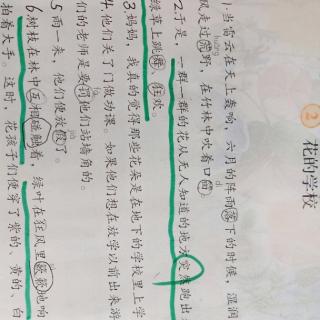 2 花的学校
1.当雷云在天上轰响，六月的阵雨落下的时候，湿润
huāng
风走过荒野，在竹林中吹着口笛。
dí
2.于是，一群一群的花从无人知道的地方突然跑出
绿草上跳舞、狂欢。
3.妈妈，我真的觉得那些花朵是在地下的学校里上学
4.他们关了门做功课。如果他们想在放学以前出来游
们的老师是要罚他们站墙角的。
jià
5雨一来，他们便放假了。
6.树枝在林中互相碰触着，绿叶在狂风里簌簌地响
拍着大手。这时，花孩子们便穿了紫的、黄的、白